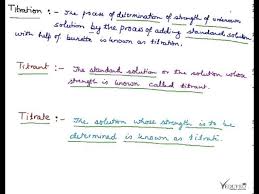 Titration :- The process of determination of strength of unknown
solution by the process of adding standard solution
with help of burette is known as titration.
Titrant :- The standard solution or the solution whose
strength is known called titrant.
Titrate :- The solution whose strength is to be
determined is known as titrate.
VEDUPRO